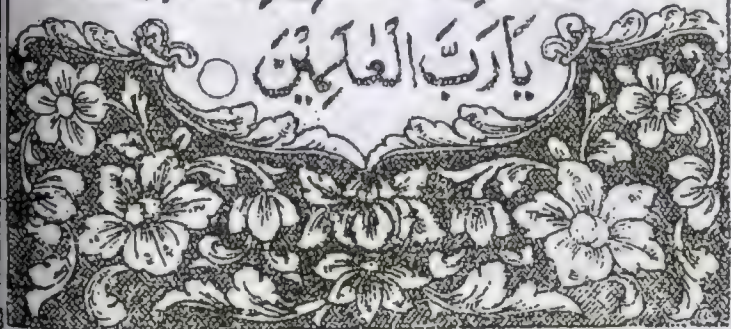 يَا رَبَّ الْعٰلَمِيْنَ ○